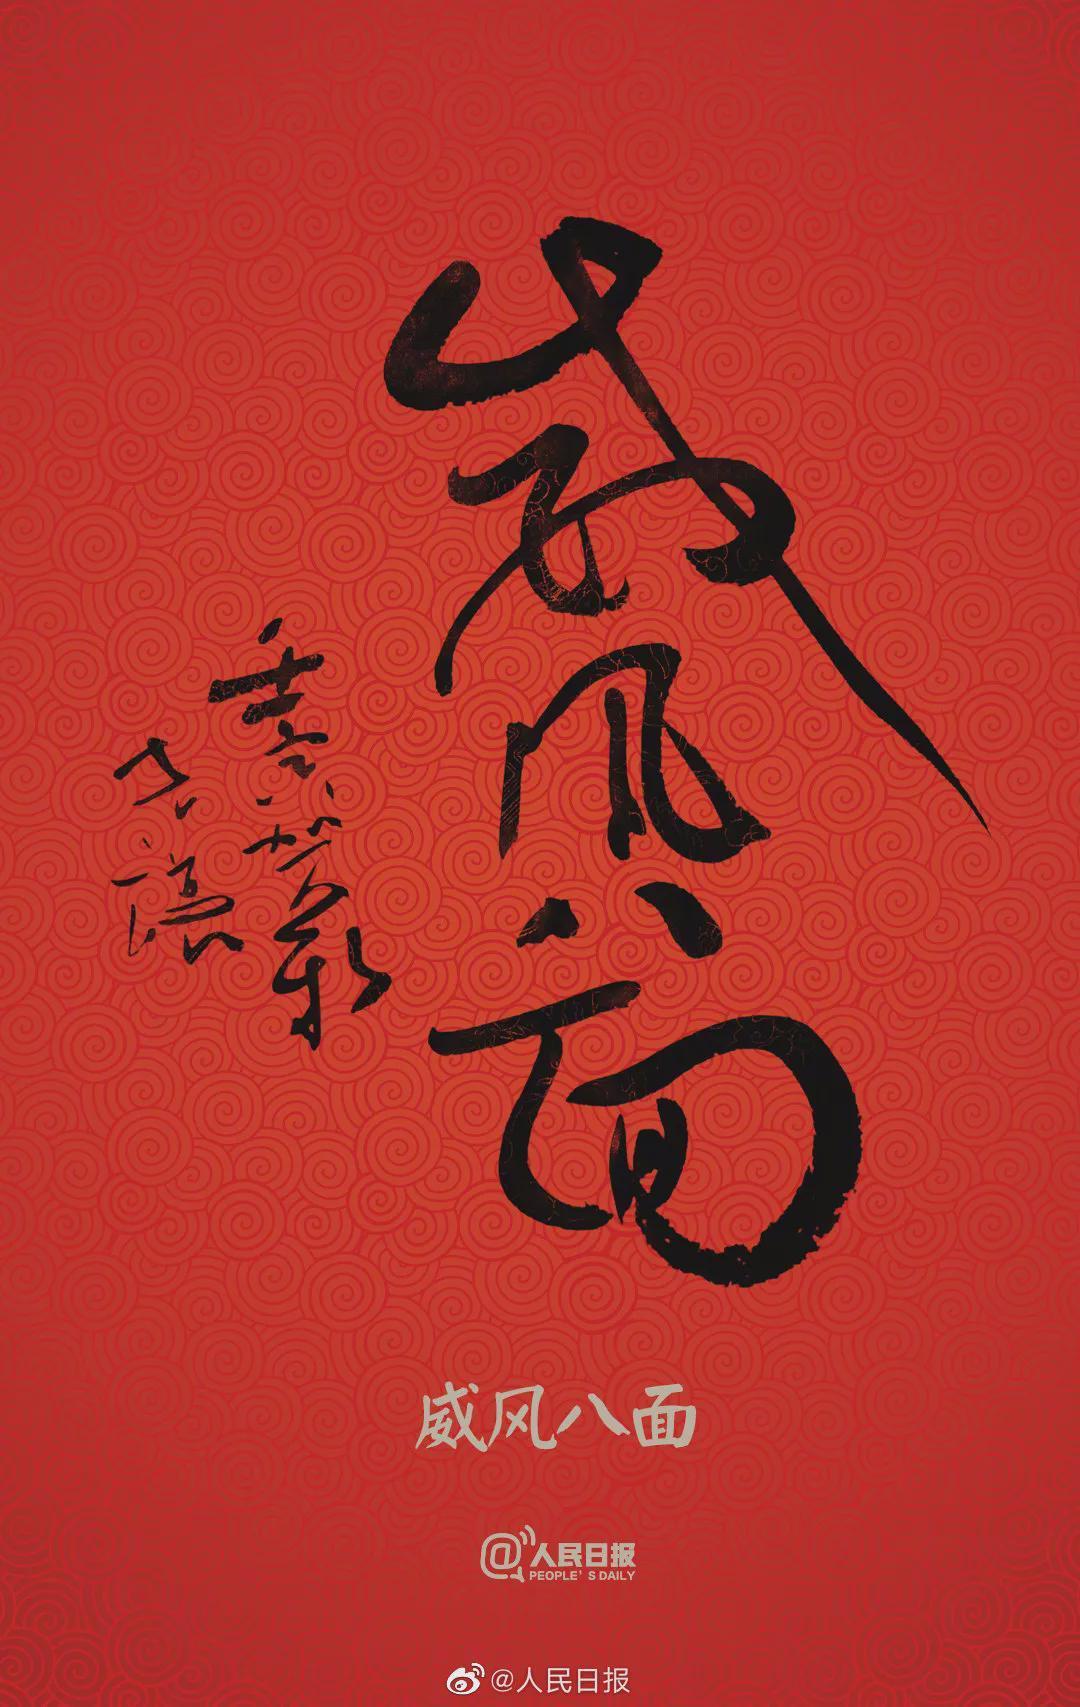 威风八面
威风八面
@人民日报
PEOPLE'S DAILY
@人民日报